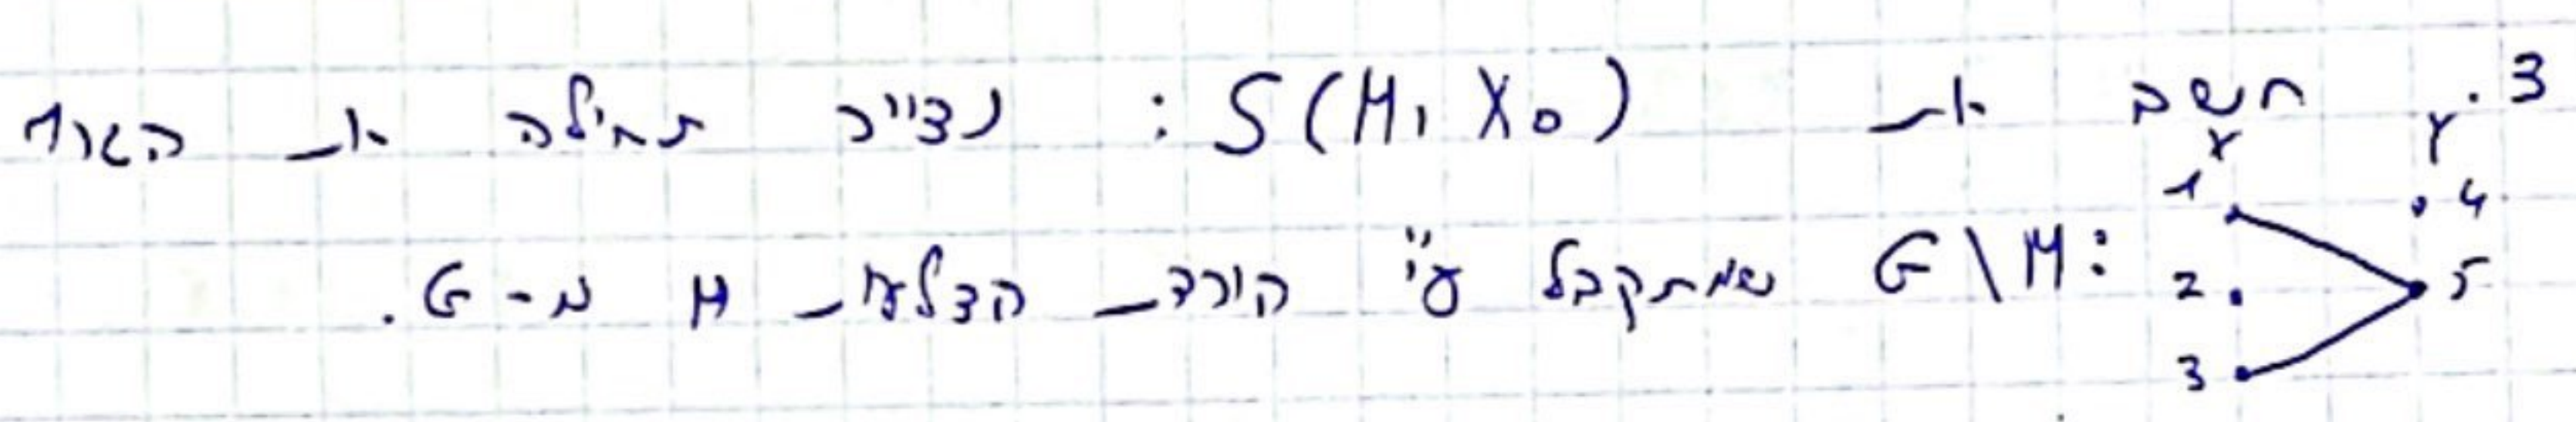 3. חשב את S(M, X₀) : נצייר תחילה את הגרף
G\M: שמתקבל ע"י הורדת הצלעות M מ-G.
X Y
1 4
2 5
3